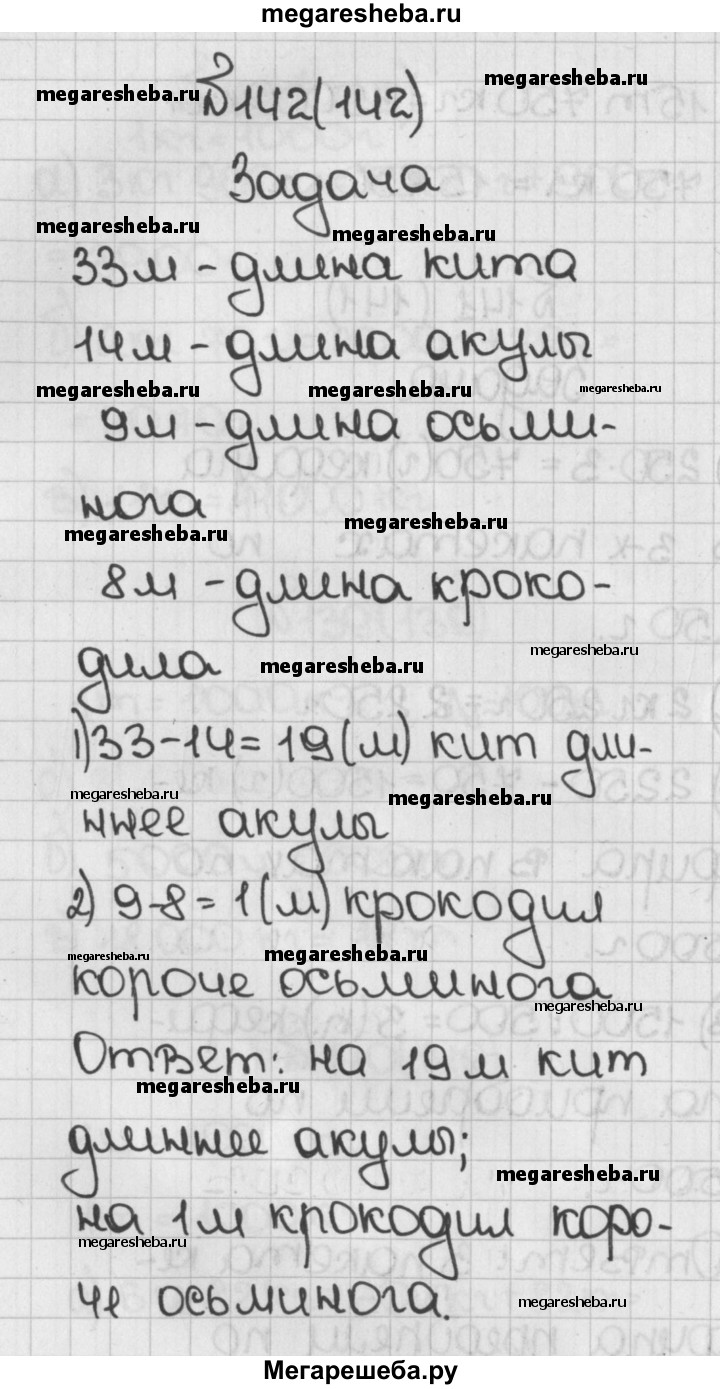 megaresheba.ru
megaresheba.ru
megaresheba.ru
№142(142)
Задача
megaresheba.ru
megaresheba.ru
33м - длина кита
14м - длина акулы
megaresheba.ru
megaresheba.ru
megaresheba.ru
9м - длина осьми-
нога
megaresheba.ru
megaresheba.ru
8м - длина кроко-
дила
megaresheba.ru
megaresheba.ru
1) 33-14=19(м) кит дли-
megaresheba.ru
megaresheba.ru
ннее акулы
2) 9-8=1(м) крокодил
megaresheba.ru
megaresheba.ru
короче осьминога
megaresheba.ru
Ответ: на 19м кит
megaresheba.ru
длиннее акулы;
megaresheba.ru
на 1м крокодил коро-
megaresheba.ru
че осьминога.
megaresheba.ru
Мегарешеба.ру